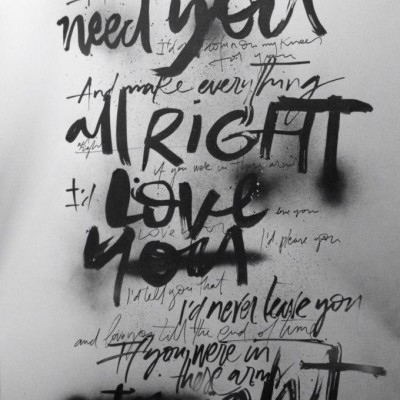 need you
I'd come on my knees
for you
And make everything
all RIGHT
if you were in these arms
I'd Love
love you
YOU
I'd please you
I'd tell you that
I'd never leave you
and love you till the end of time
If you were in
these arms